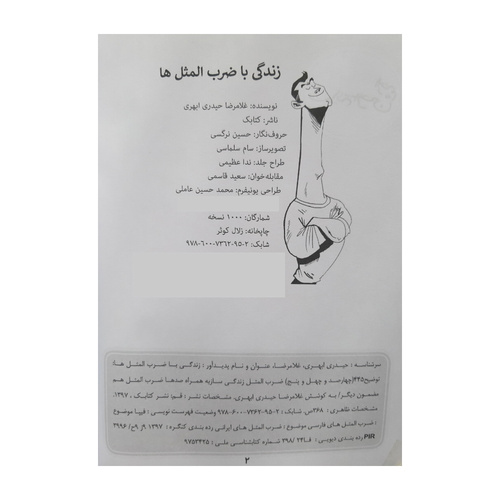 زندگی با ضرب المثل ها
نویسنده: غلامرضا حیدری ابهری
ناشر: کتابک
حروف‌نگار: حسین نرگسی
تصویرساز: سام سلماسی
طراح جلد: ندا عظیمی
مقابله‌خوان: سعید قاسمی
طراحی یونیفرم: محمد حسین عاملی
شمارگان: ۱۰۰۰ نسخه
چاپخانه: زلال کوثر
شابک: ۲-۹۵-۷۳۶۲-۶۰۰-۹۷۸
سرشناسه : حیدری ابهری، غلامرضا، عنوان و نام پدیدآور : زندگی با ضرب المثل ها:
توضیح۴۴۵(چهارصد و چهل و پنج) ضرب المثل زندگی سازبه همراه صدها ضرب المثل هم
مضمون دیگر/ به کوشش غلامرضا حیدری ابهری. مشخصات نشر : قم: نشر کتابک ، ۱۳۹۷.
مشخصات ظاهری : ۲۶۸ص. شابک : ۲-۹۵-۷۳۶۲-۶۰۰-۹۷۸ وضعیت فهرست نویسی : فیپا موضوع
: ضرب المثل های فارسی موضوع : ضرب المثل های ایرانی رده بندی کنگره : ۱۳۹۷ ۹ز۹ح/ ۳۹۹۶
PIR رده بندی دیویی : ۳۹۸/۹فا۲۴ شماره کتابشناسی ملی : ۹۷۵۲۴۲۵
۲